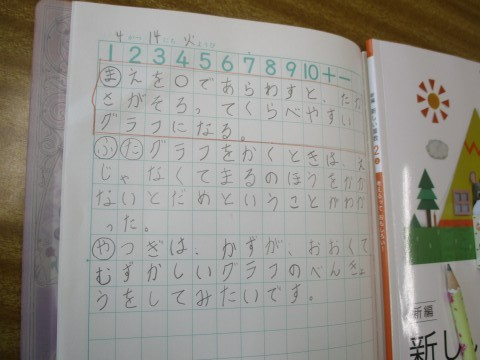 4がつ 14にち 火ようび
1 2 3 4 5 6 7 8 9 10 + −
まえを○であらわすと、たか
さがそろってくらべやすい
グラフになる。
ふたグラフをかくときは、え
じゃなくてまるのほうをかか
ないとだめということがわか
った。
やつぎは、かずが、おおくて
むずかしいグラフのべんきょ
うをしてみたいです。
新編
新し